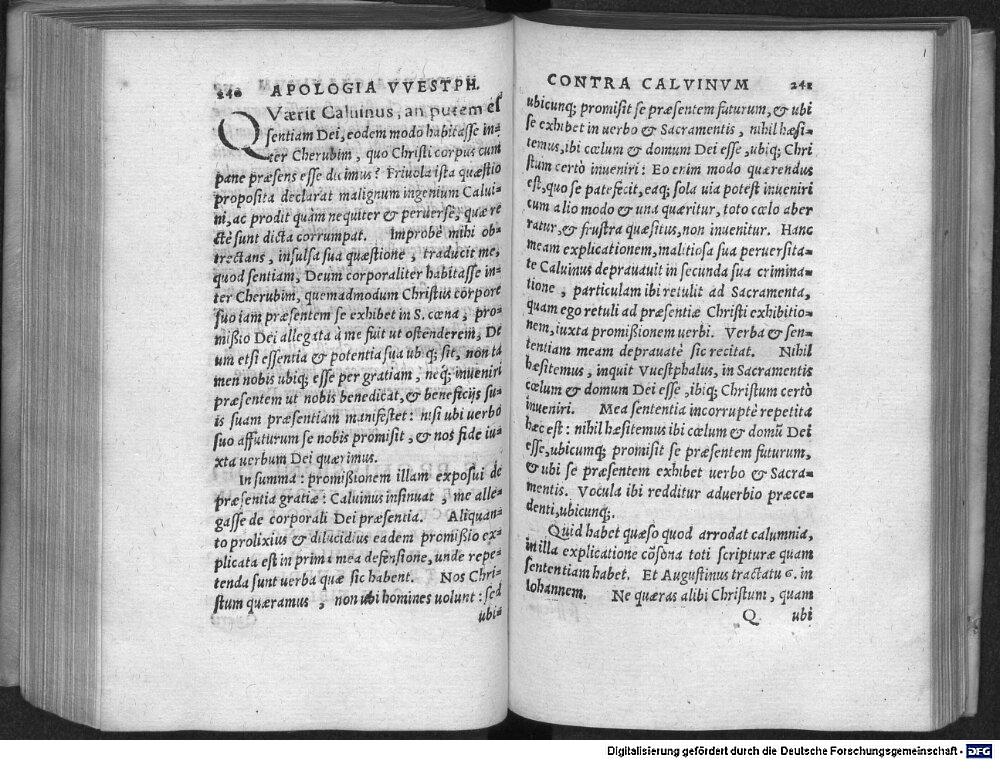 240 APOLOGIA VVESTPH.
QVærit Caluinus, an putem es
sentiam Dei, eodem modo habitasse in=
ter Cherubim, quo Christi corpus cum
pane præsens esse dicimus? Friuola ista quæstio
proposita declarat malignum ingenium Calui=
ni, ac prodit quàm nequiter & peruersè, quæ re
ctè sunt dicta corrumpat. Improbè mihi ob=
trectans, insulsa sua quæstione, traducit me,
quod sentiam, Deum corporaliter habitasse in=
ter Cherubim, quemadmodum Christus corpore
suo iam præsentem se exhibet in S. cœna, pro=
missio Dei allegata à me fuit ut ostenderem, De
um etsi essentia & potentia sua ubiq; sit, non ta
men nobis ubiq; esse per gratiam, neq; inueniri
præsentem ut nobis benedicat, & beneficijs su=
is suam præsentiam manifestet: nisi ubi uerbo
suo affuturum se nobis promisit, & nos fide iu=
xta uerbum Dei quærimus.
In summa: promissionem illam exposui de
præsentia gratiæ: Caluinus insinuat, me alle=
gasse de corporali Dei præsentia. Aliquan=
to prolixius & dilucidius eadem promissio ex=
plicata est in prima mea defensione, unde repe=
tenda sunt uerba quæ sic habent. Nos Chri=
stum quæramus, non ubi homines uolunt: sed
ubi=
CONTRA CALVINVM 241
ubicunq; promisit se præsentem futurum, & ubi
se exhibet in uerbo & Sacramentis, nihil hæsi=
temus, ibi cœlum & domum Dei esse, ubiq; Chri
stum certò inueniri: Eo enim modo quærendus
est, quo se patefecit, eaq; sola uia potest inueniri
cum alio modo & una quæritur, toto cœlo aber
ratur, & frustra quæsitus, non inuenitur. Hanc
meam explicationem, malitiosa sua peruersita=
te Caluinus deprauauit in secunda sua crimina=
tione, particulam ibi retulit ad Sacramenta,
quam ego retuli ad præsentiæ Christi exhibitio=
nem, iuxta promissionem uerbi. Verba & sen=
tentiam meam deprauatè sic recitat. Nihil
hæsitemus, inquit Vuestphalus, in Sacramentis
cœlum & domum Dei esse, ibiq; Christum certò
inueniri. Mea sententia incorruptè repetita
hæc est: nihil hæsitemus ibi cœlum & domũ Dei
esse, ubicumq; promisit se præsentem futurum,
& ubi se præsentem exhibet uerbo & Sacra=
mentis. Vocula ibi redditur aduerbio præce=
denti, ubicunq;.
Quid habet quæso quod arrodat calumnia,
in illa explicatione cõsona toti scripturæ quam
sententiam habet. Et Augustinus tractatu 6. in
Iohannem. Ne quæras alibi Christum, quam
Q ubi
Digitalisierung gefördert durch die Deutsche Forschungsgemeinschaft - DFG